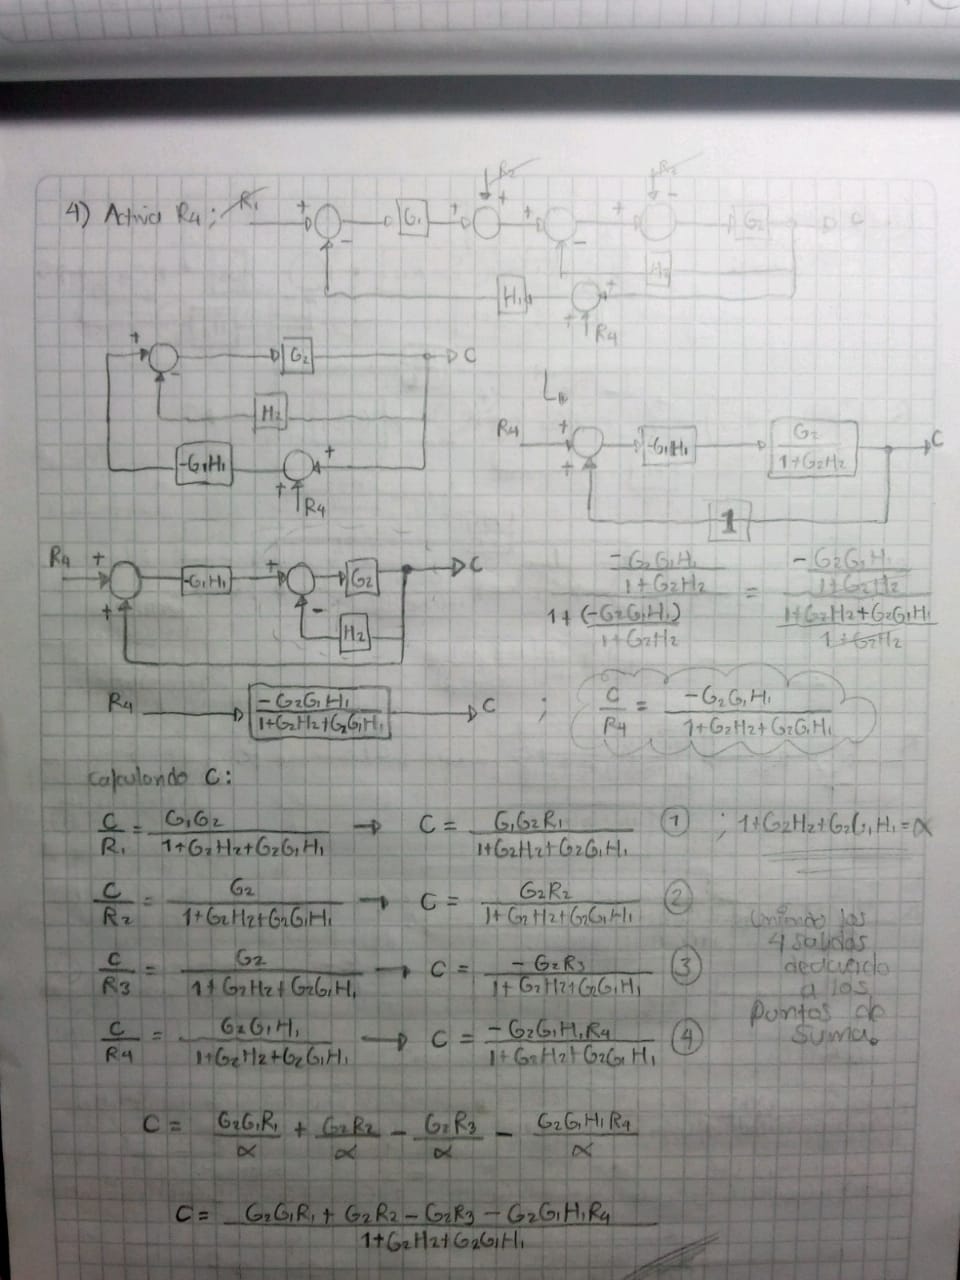 R2 R3
4) Activa R4; R1 + - G1 + + + - + - G2 C
H2
H1 + + R4
+ - G2 C
H2
-G1H1 + + R4
R4 + + -G1H1 G2 / 1+G2H2 C
1
R4 + + -G1H1 + - G2 C
H2
(-G2G1H1 / 1+G2H2) / (1+(-G2G1H1) / 1+G2H2) = (-G2G1H1 / 1+G2H2) / (1+G2H2+G2G1H1 / 1+G2H2)
R4 -G2G1H1 / 1+G2H2+G2G1H1 C ; C/R4 = -G2G1H1 / 1+G2H2+G2G1H1
Calculando C:
C/R1 = G1G2 / 1+G2H2+G2G1H1 → C = G1G2R1 / 1+G2H2+G2G1H1 ① ; 1+G2H2+G2G1H1=α
C/R2 = G2 / 1+G2H2+G2G1H1 → C = G2R2 / 1+G2H2+G2G1H1 ②
C/R3 = G2 / 1+G2H2+G2G1H1 → C = -G2R3 / 1+G2H2+G2G1H1 ③
C/R4 = G2G1H1 / 1+G2H2+G2G1H1 → C = -G2G1H1R4 / 1+G2H2+G2G1H1 ④
Uniendo las
4 salidas
deacuerdo
a los
puntos de
suma.
C = G2G1R1/α + G2R2/α - G2R3/α - G2G1H1R4/α
C = G2G1R1 + G2R2 - G2R3 - G2G1H1R4 / 1+G2H2+G2G1H1